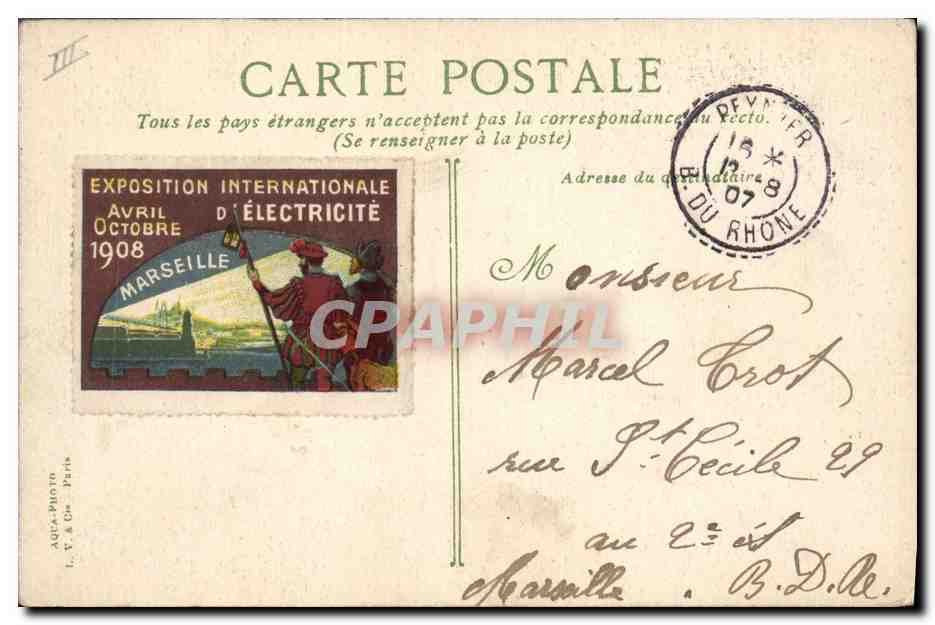 III
CARTE POSTALE
Tous les pays étrangers n'acceptent pas la correspondance au recto.
(Se renseigner à la poste)
EXPOSITION INTERNATIONALE
AVRIL D'ÉLECTRICITÉ
OCTOBRE
1908
MARSEILLE
AQUA-PHOTO
L. V. & Cie Paris
PEYNIER
07 8
B. DU RHÔNE
Adresse du destinataire
Monsieur
Marcel Crot
rue St. Cécile 29
au 2e ét
Marseille. B.D.R.
CPAPHIL